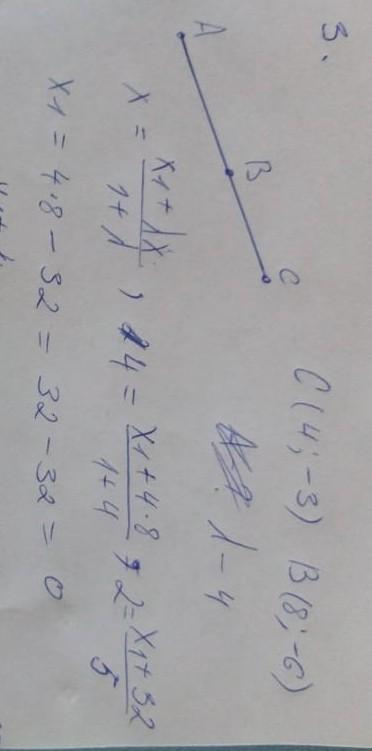 3.
A B C
C(4;-3) B(8;-6)
λ-4
x = \frac{x1 + λx}{1+λ}, 4 = \frac{x1+4·8}{1+4}, 2 = \frac{x1+32}{5}
x1 = 4·8 - 32 = 32 - 32 = 0